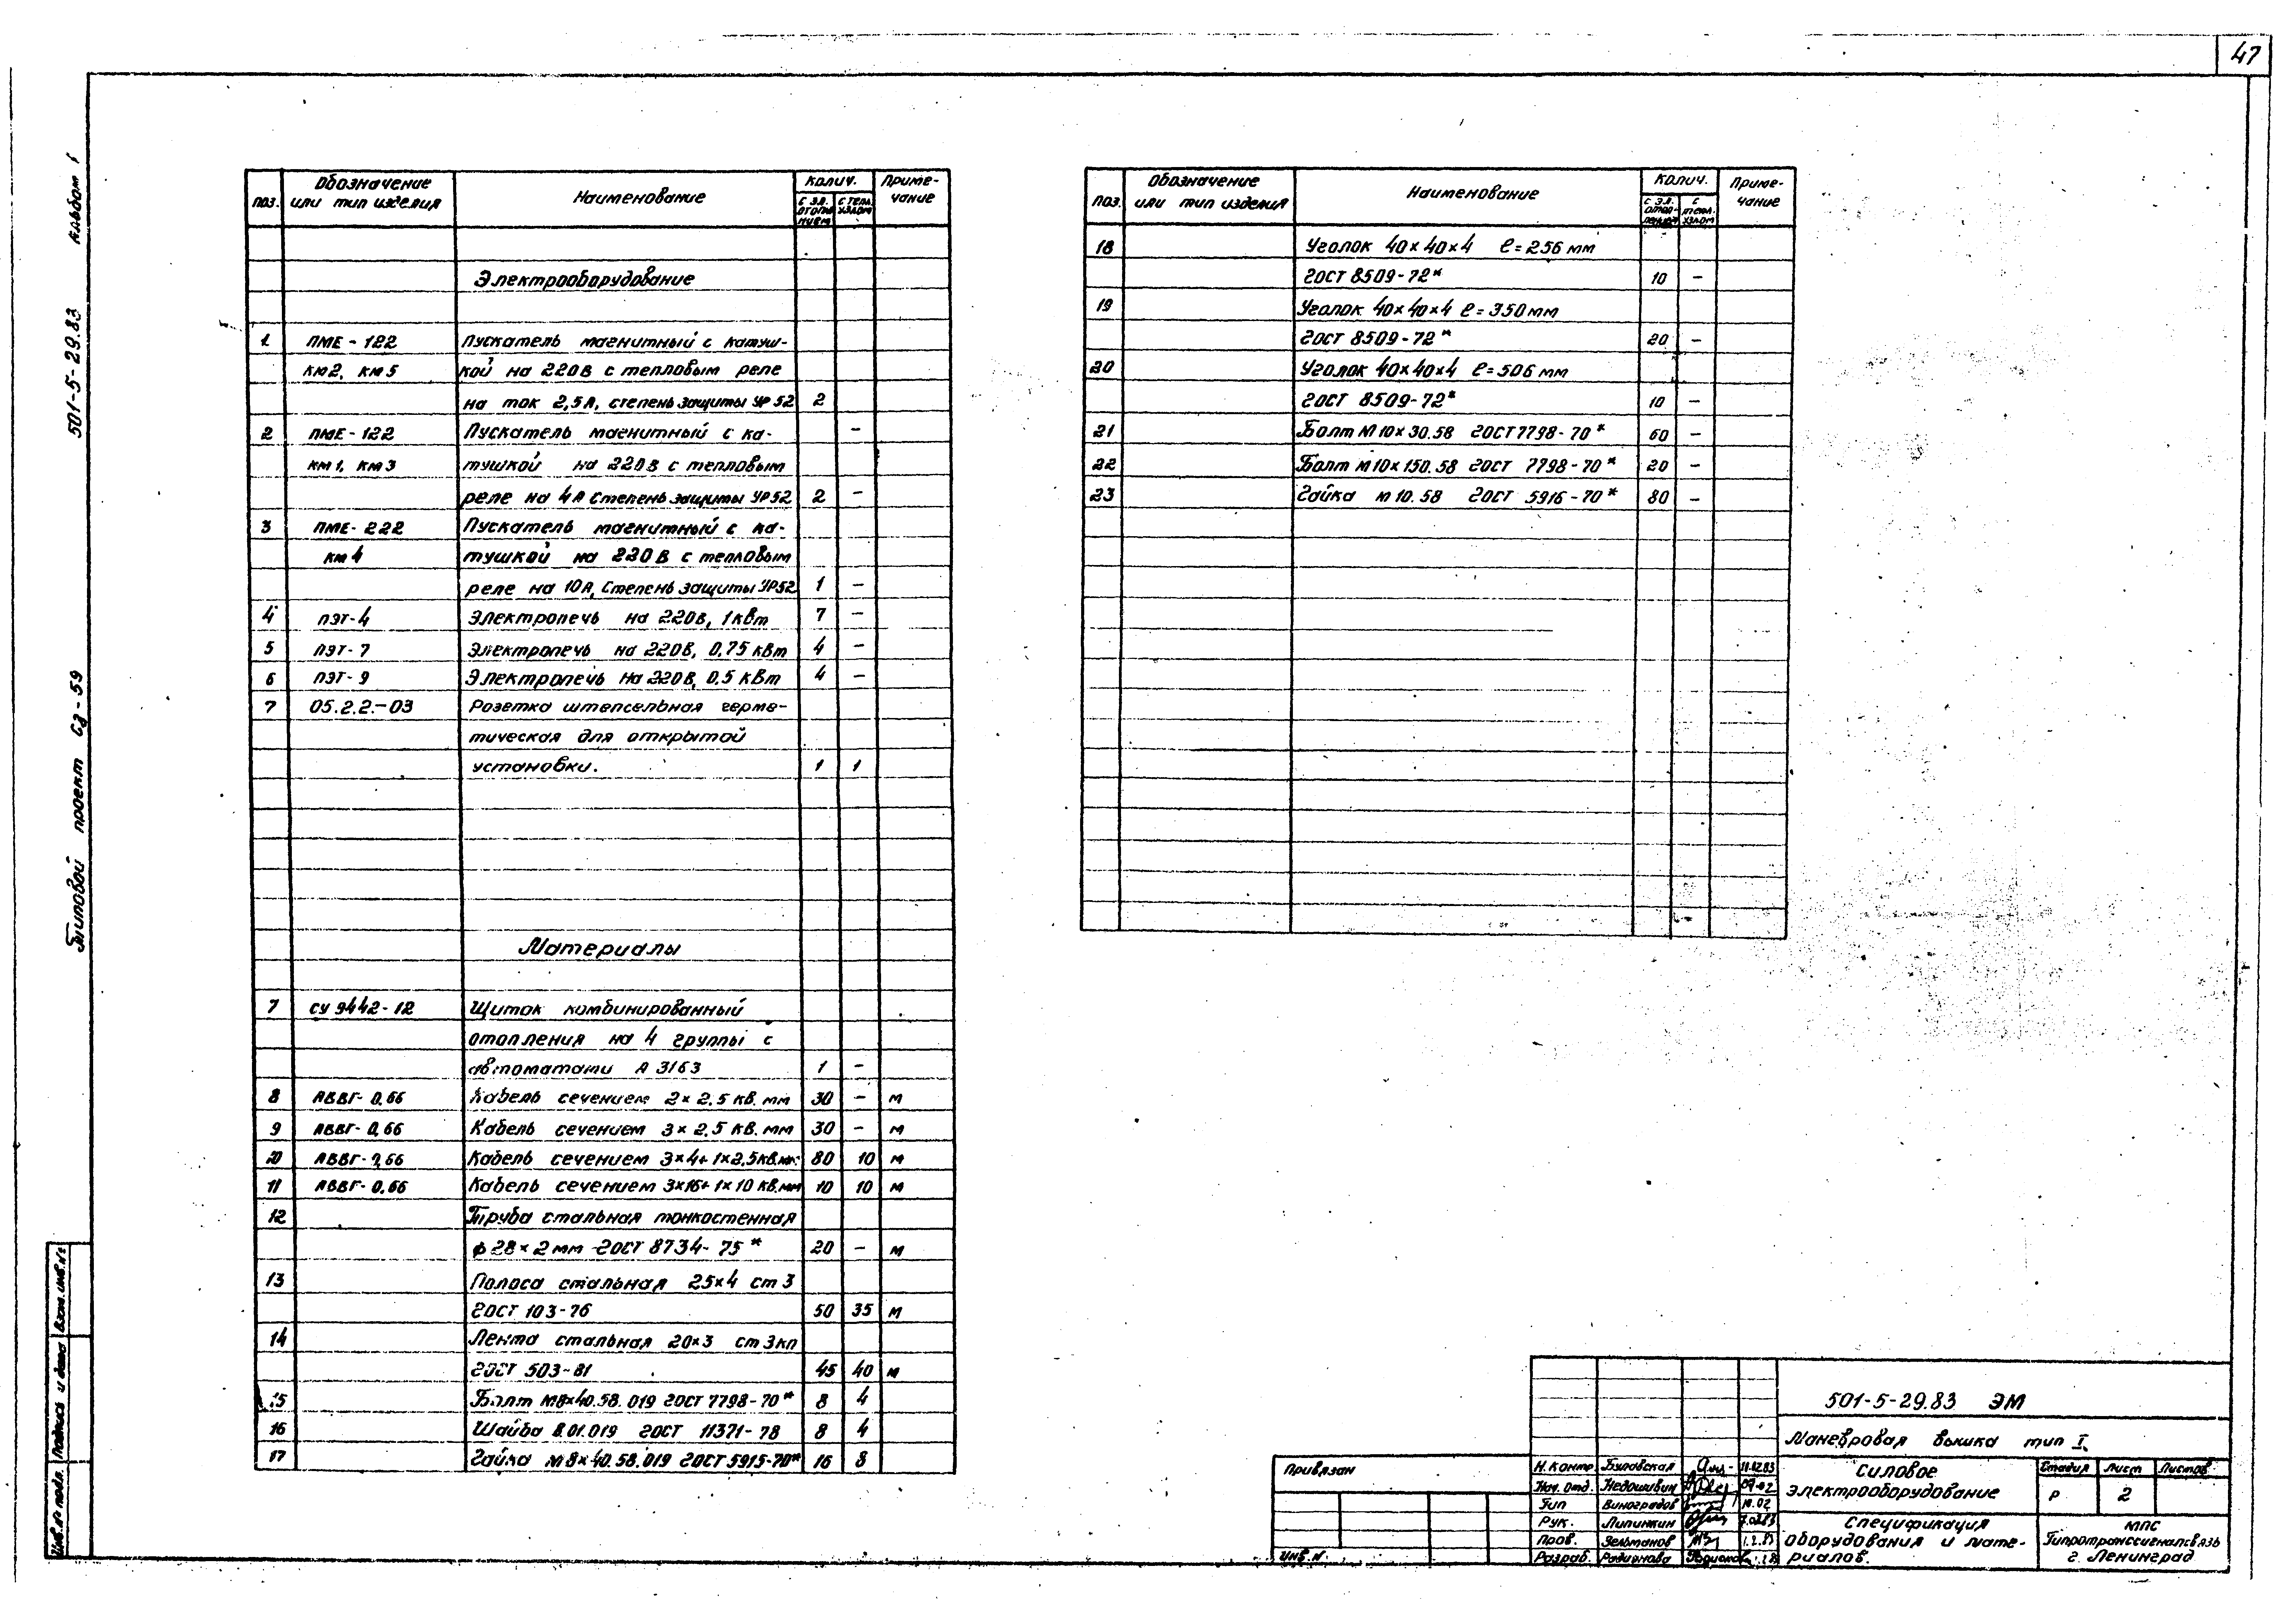 47
Типовой проект СД-59 501-5-29.83 Альбом I
поз. Обозначение или тип изделия Наименование Колич. Приме-чание
с эл. отопле-нием с тепл. узлом
Электрооборудование
1 ПМЕ-122 Пускатель магнитный с катуш-
КМ2, КМ5 кой на 220В с тепловым реле
на ток 2,5А, степень защиты УР52 2
2 ПМЕ-122 Пускатель магнитный с ка- –
КМ1, КМ3 тушкой на 220В с тепловым
реле на 4А Степень защиты УР52 2 –
3 ПМЕ-222 Пускатель магнитный с ка-
КМ4 тушкой на 220В с тепловым
реле на 10А, Степень защиты УР52 1 –
4 ПЭТ-4 Электропечь на 220В, 1кВт 7 –
5 ПЭТ-7 Электропечь на 220В, 0,75кВт 4 –
6 ПЭТ-9 Электропечь на 220В, 0,5кВт 4 –
7 05.2.2.-03 Розетка штепсельная герме-
тическая для открытой
установки. 1 1
Материалы
7 СУ 9442-12 Щиток комбинированный
отопления на 4 группы с
автоматами А3163 1 –
8 АВВГ-0,66 Кабель сечением 2×2,5 кв.мм 30 – м
9 АВВГ-0,66 Кабель сечением 3×2,5 кв.мм 30 – м
10 АВВГ-0,66 Кабель сечением 3×4+1×2,5кв.мм 80 10 м
11 АВВГ-0,66 Кабель сечением 3×16+1×10 кв.мм 10 10 м
12 Труба стальная тонкостенная
ф28×2мм ГОСТ 8734-75* 20 – м
13 Полоса стальная 25×4 ст3
ГОСТ 103-76 50 35 м
14 Лента стальная 20×3 ст3кп
ГОСТ 503-81 45 40 м
15 Болт М8×40.58.019 ГОСТ 7798-70* 8 4
16 Шайба 8.01.019 ГОСТ 11371-78 8 4
17 Гайка М8×40.58.019 ГОСТ 5915-70* 16 8
поз. Обозначение или тип изделия Наименование Колич. Приме-чание
с эл. отоп-лением с тепл. узлом
18 Уголок 40×40×4 ℓ=256мм
ГОСТ 8509-72* 10 –
19 Уголок 40×40×4 ℓ=350мм
ГОСТ 8509-72* 20 –
20 Уголок 40×40×4 ℓ=506мм
ГОСТ 8509-72* 10 –
21 Болт М10×30.58 ГОСТ 7798-70* 60 –
22 Болт М10×150.58 ГОСТ 7798-70* 20 –
23 Гайка М10.58 ГОСТ 5916-70* 80 –
Инв.№ подл. Подпись и дата Взам.инв.№
Привязан
Инв.№
501-5-29.83 ЭМ
Маневровая вышка тип I
Н.контр. Буловская 11.02.83
Нач.отд. Недошивин 09.02
Гип Виноградов 10.02
Рук. Липинкин
Пров. Зельманов
Разраб. Родионова
Силовое
электрооборудование
Стадия Лист Листов
Р 2
Спецификация
оборудования и мате-
риалов.
МПС
Гипротранссигналсвязь
г. Ленинград